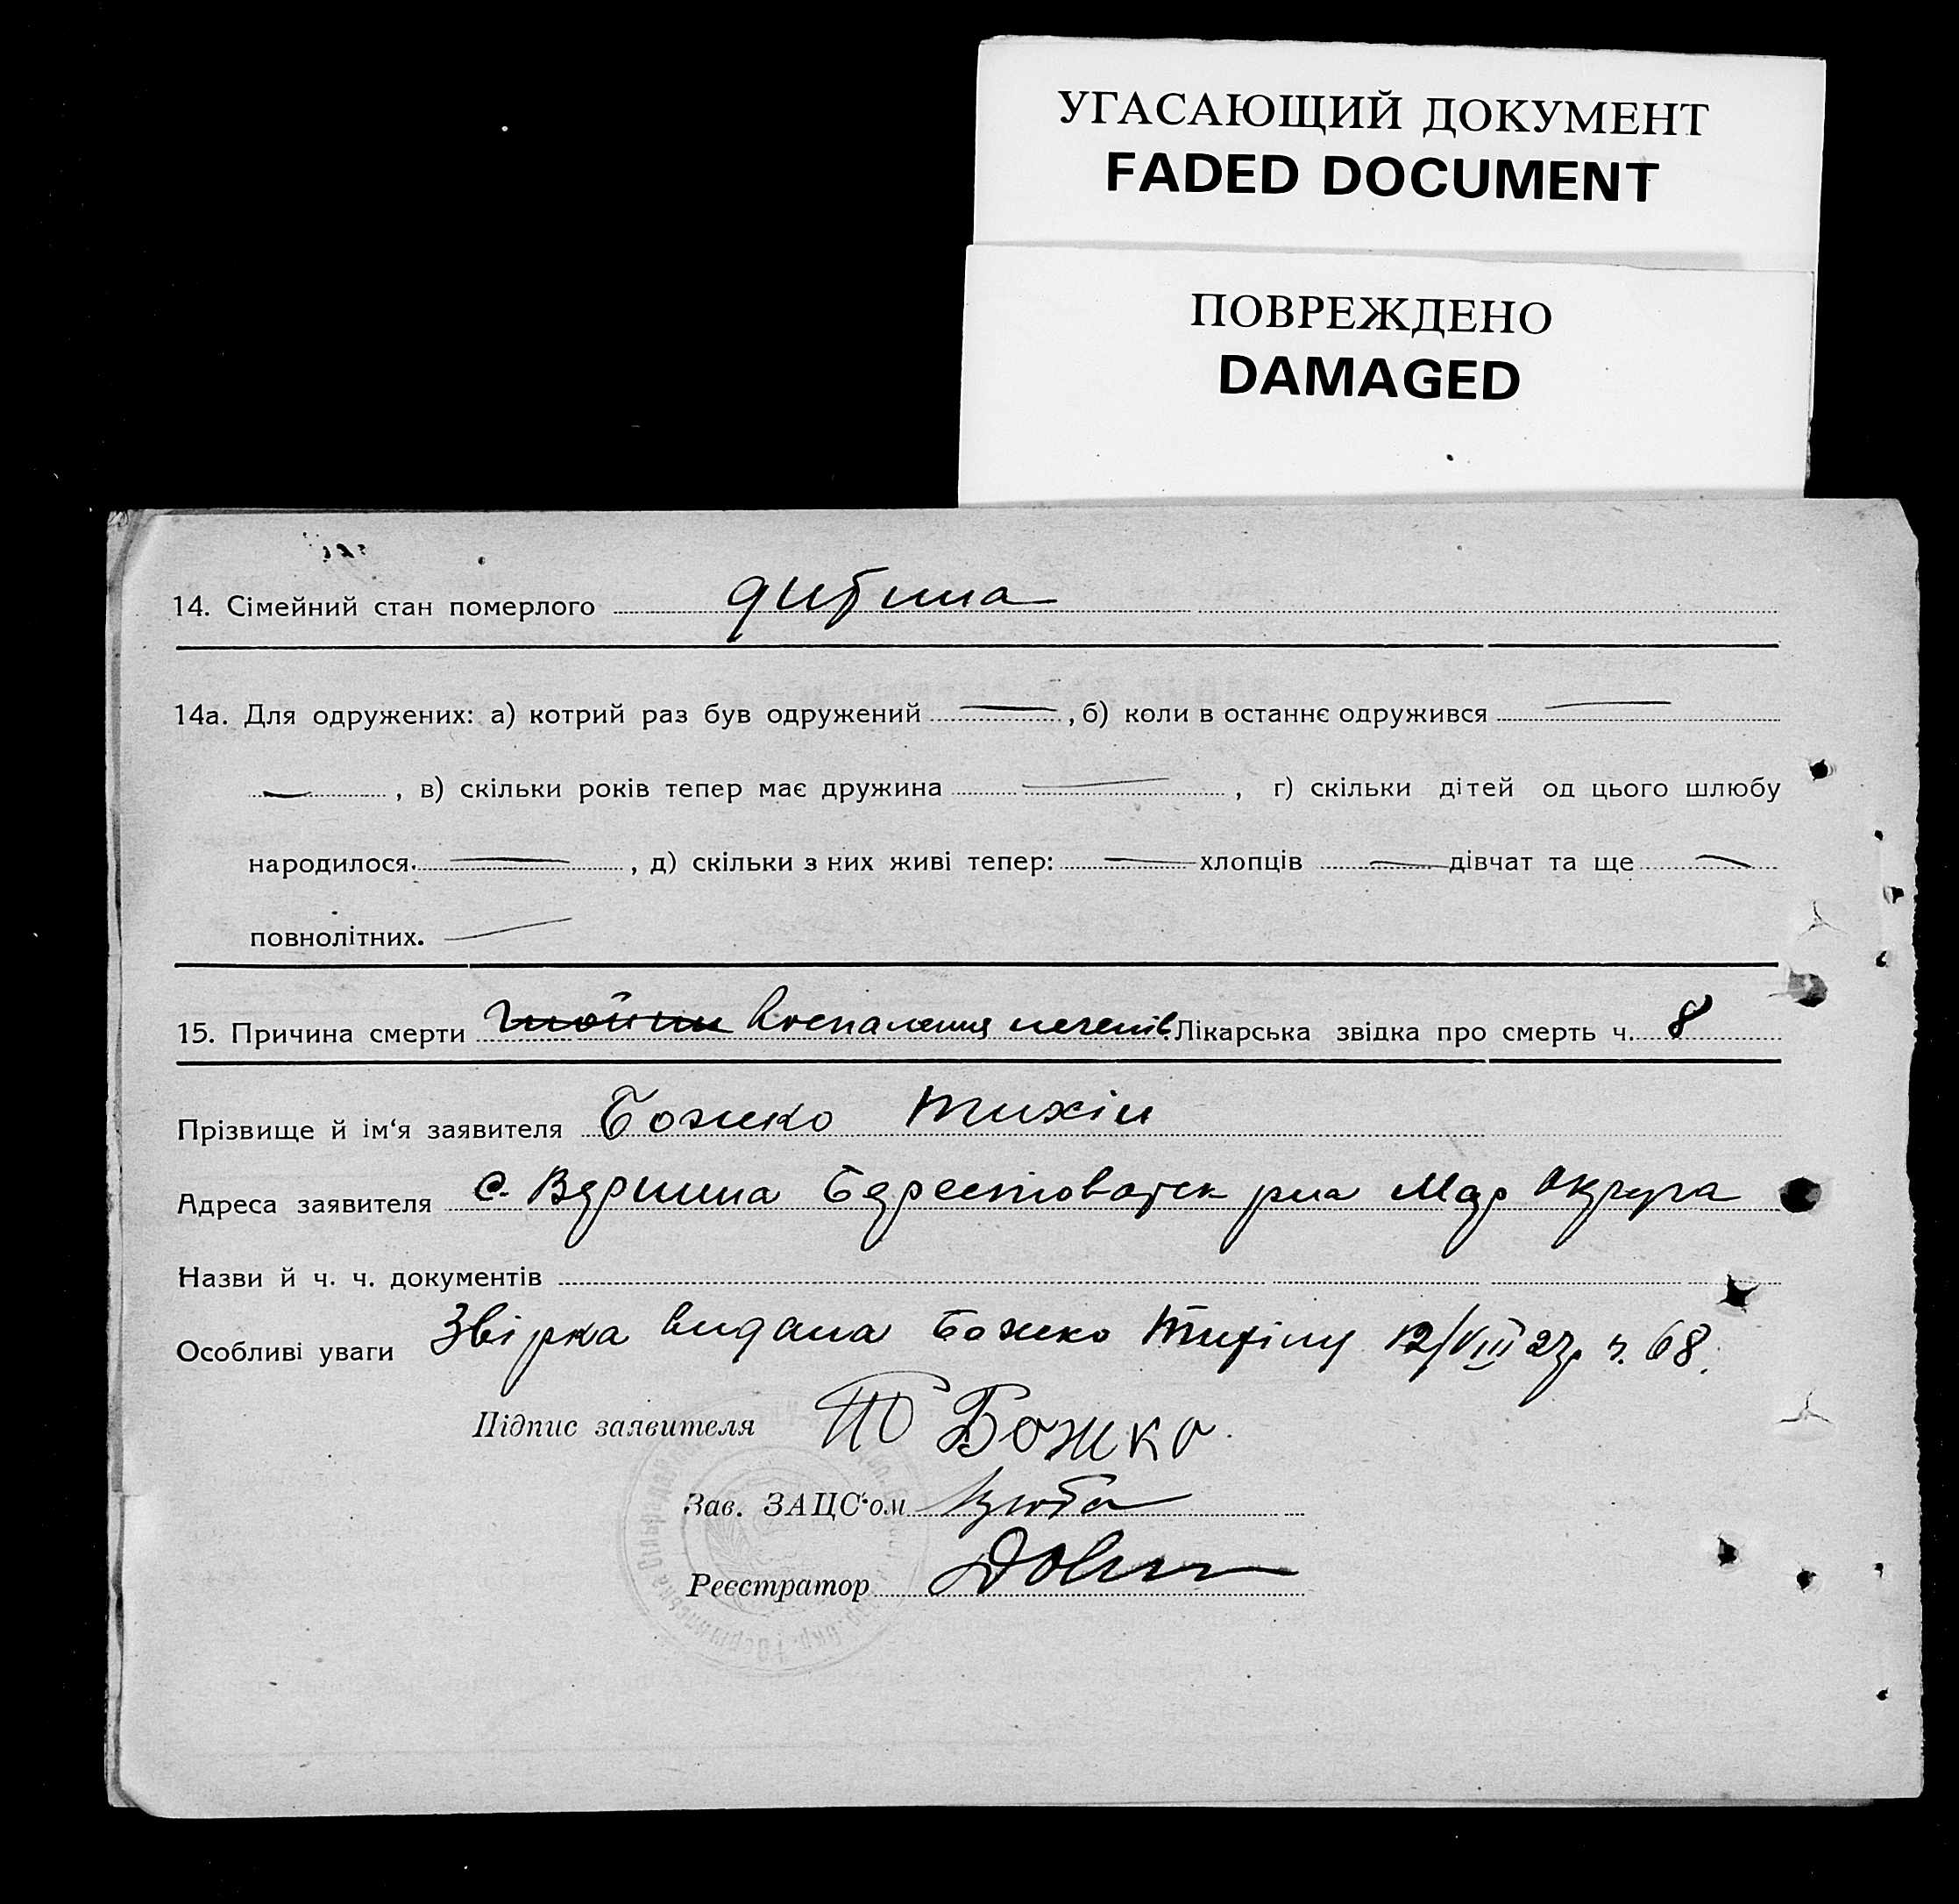 УГАСАЮЩИЙ ДОКУМЕНТ
FADED DOCUMENT
ПОВРЕЖДЕНО
DAMAGED
14. Сімейний стан померлого дитина
14а. Для одружених: а) котрий раз був одружений — , б) коли в останнє одружився —
— , в) скільки років тепер має дружина — , г) скільки дітей од цього шлюбу
народилося. — , д) скільки з них живі тепер: — хлопців — дівчат та ще —
повнолітних. —
15. Причина смерти воспаления печенів Лікарська звідка про смерть ч. 8
Прізвище й ім‘я заявителя Божко Тихін
Адреса заявителя с. Вершина Берестоватск рна Мар Округа
Назви й ч. ч. документів
Особливі уваги Звірка видана Божко Тихіну 12/VIII 27р ч. 68.
Підпис заявителя Божко.
Зав. ЗАЦС‘ом
Реєстратор